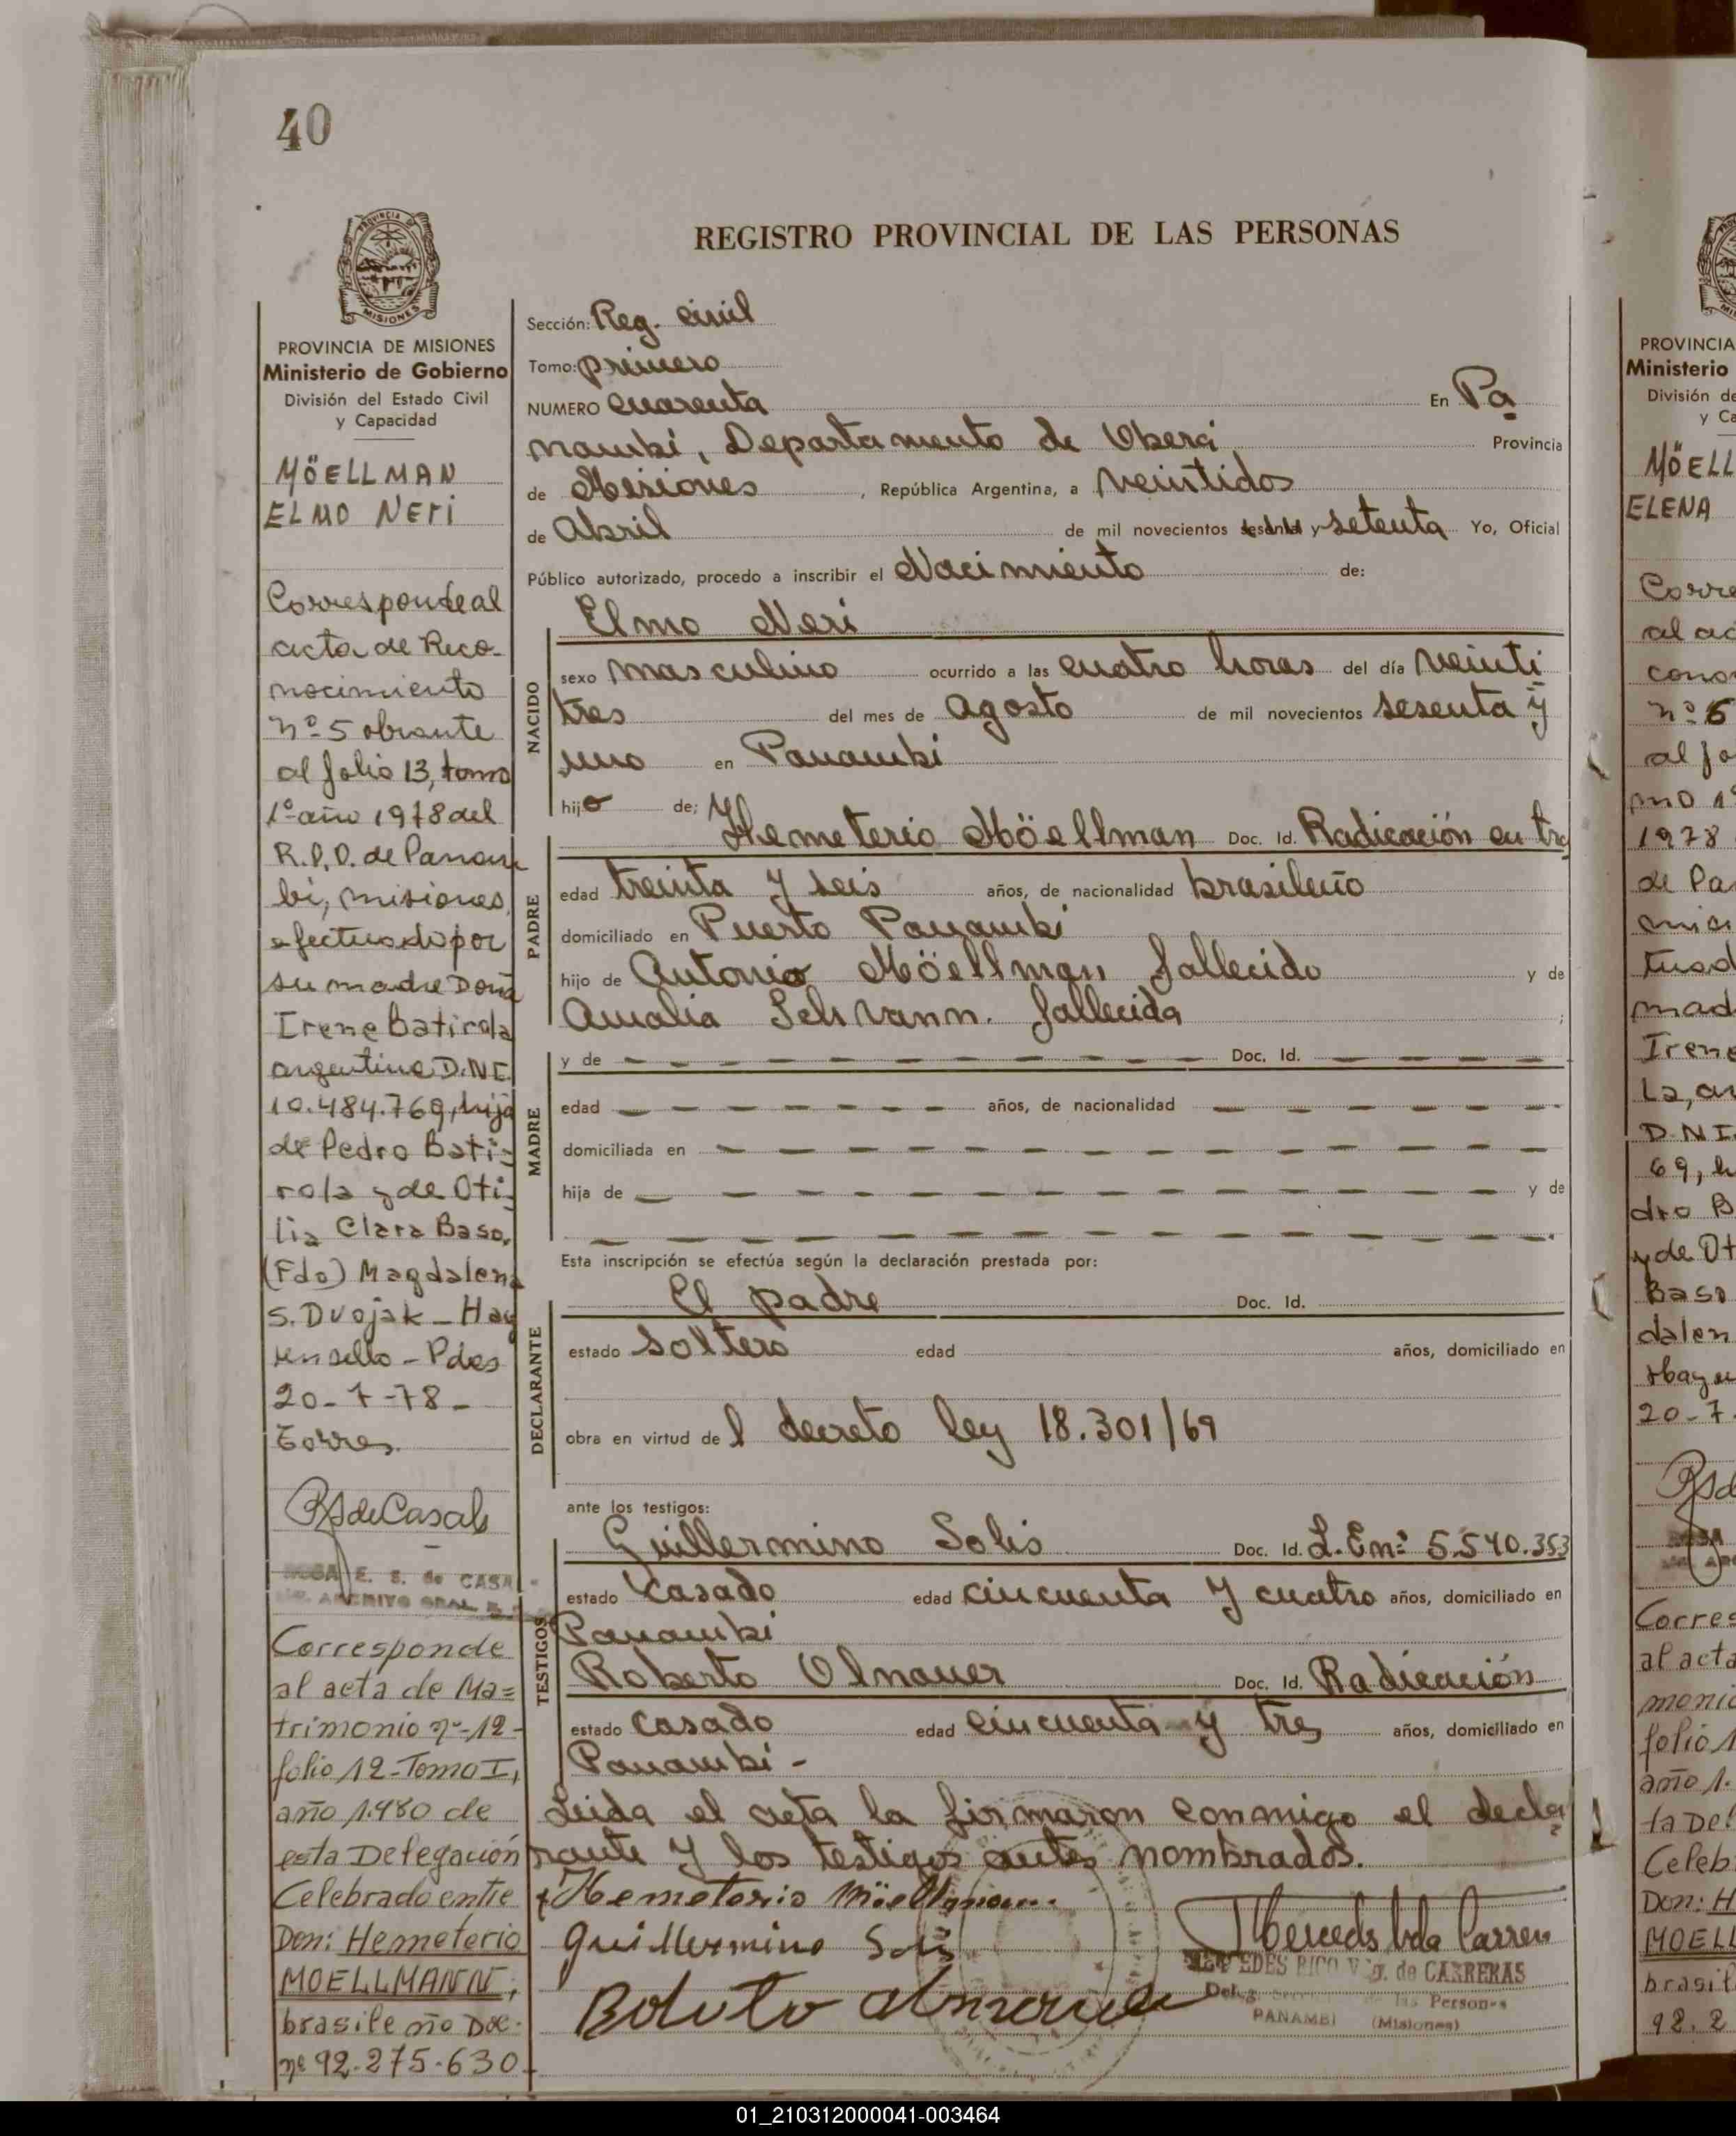 40
REGISTRO PROVINCIAL DE LAS PERSONAS
PROVINCIA DE
MISIONES
PROVINCIA DE MISIONES
Ministerio de Gobierno
División del Estado Civil
y Capacidad
MÖELLMAN
ELMO NEri
Corresponde al
acta de Reco-
nocimiento
nº 5 obrante
al folio 13, tomo
1º año 1978 del
R.P.D. de Panam
bí, misiones,
efectuado por
su madre Doña
Irene Batirola
argentina D.N.I.
10.484.769, hija
de Pedro Bati-
rola y de Oti-
lia Clara Baso.
(Fdo) Magdalena
S. Dvojak - Hay
un sello - Pdas
20-7-78-
Torres.
RSdeCasals
E. S. de CASA
Corresponde
al acta de Ma=
trimonio nº-12-
folio 12-Tomo I,
año 1.980 de
esta Delegación
Celebrado entre
Don: Hemeterio
MOELLMANN,
brasileño Doc.
nº 92.275.630
Sección: Reg. civil
Tomo: primero
NUMERO cuarenta En Pa
nambí, Departamento de Oberá Provincia
de Misiones, República Argentina, a veintidos
de Abril de mil novecientos sesenta y setenta Yo, Oficial
Público autorizado, procedo a inscribir el Nacimiento de:
Elmo Neri
NACIDO
sexo masculino ocurrido a las cuatro horas del día veinti
tres del mes de Agosto de mil novecientos sesenta y
uno en Panambí
hijo de:
PADRE
Hemeterio Möellman Doc. Id. Radicación en tra
edad treinta y seis años, de nacionalidad brasileño
domiciliado en Puerto Panambí
hijo de Antonio Möellman fallecido y de
Amalia Schvann. fallecida ;
MADRE
y de — — — Doc. Id. — — —
edad — — — años, de nacionalidad — — —
domiciliada en — — —
hija de — — — y de
— — —
Esta inscripción se efectúa según la declaración prestada por:
DECLARANTE
El padre Doc. Id.
estado soltero edad años, domiciliado en
obra en virtud del decreto ley 18.301/69
ante los testigos:
TESTIGOS
Guillermino Solis Doc. Id. L.E.nº 5.540.353
estado casado edad cincuenta y cuatro años, domiciliado en
Panambí
Roberto Olnauer Doc. Id. Radicación
estado casado edad cincuenta y tres años, domiciliado en
Panambí -
Leida el acta la firmaron conmigo el decla
rante y los testigos antes nombrados.
Hemeterio Möellman
Guillermino Solis
Mercedes Vda Carrera
MERCEDES RICO V de CARRERAS
PANAMBI (Misiones)
PROVINCIA
Ministerio
División de
y Ca
MÖELL
ELENA
Corre
al ac
cono
nº 6
al fo
mo 1º
1978
de Pa
misi
tuad
mad
Irene
La, ar
D.N.I.
69, h
dro B
y de Ot
Baso
dalen
Hay u
20-7-
Corres
al acta
monio
folio 1
año 1.
ta Del
Celeb
Don: H
MOELL
brasil
92.2
01_210312000041-003464